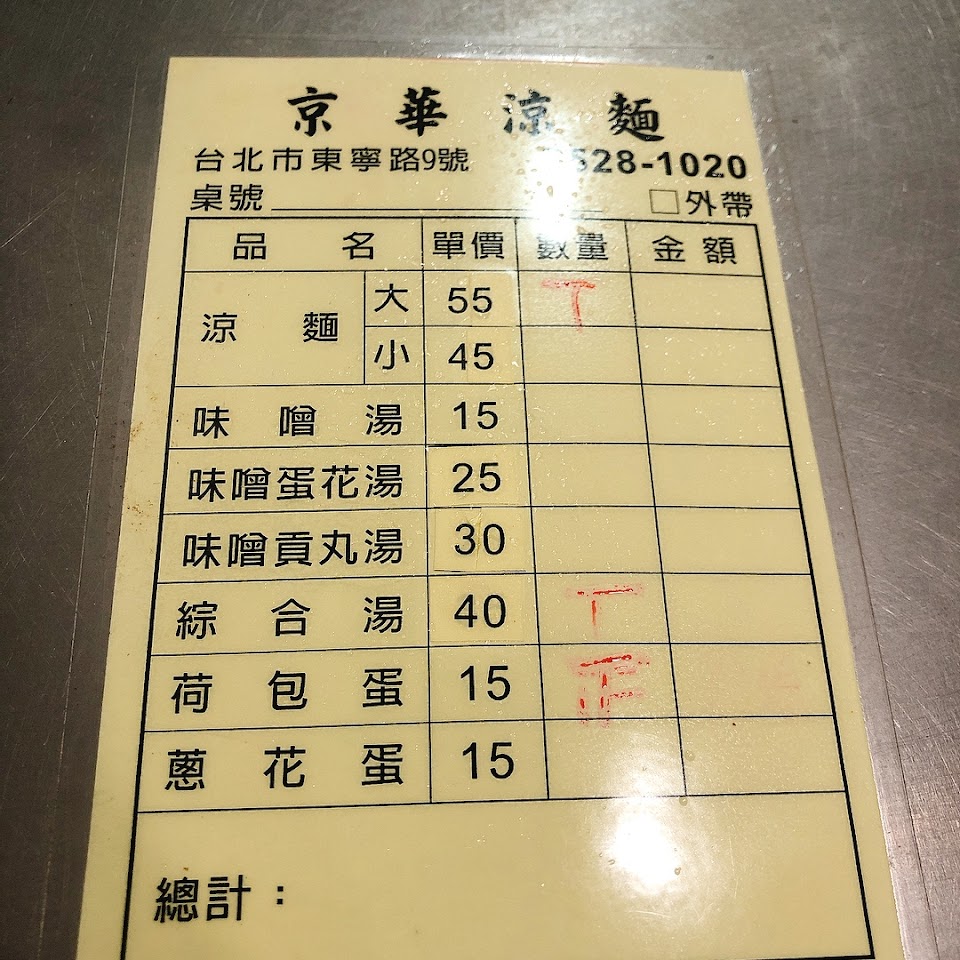 京華涼麵
台北市東寧路9號 528-1020
桌號 □外帶
品名 單價 數量 金額
涼麵 大 55 T
小 45
味噌湯 15
味噌蛋花湯 25
味噌貢丸湯 30
綜合湯 40 T
荷包蛋 15
蔥花蛋 15
總計：